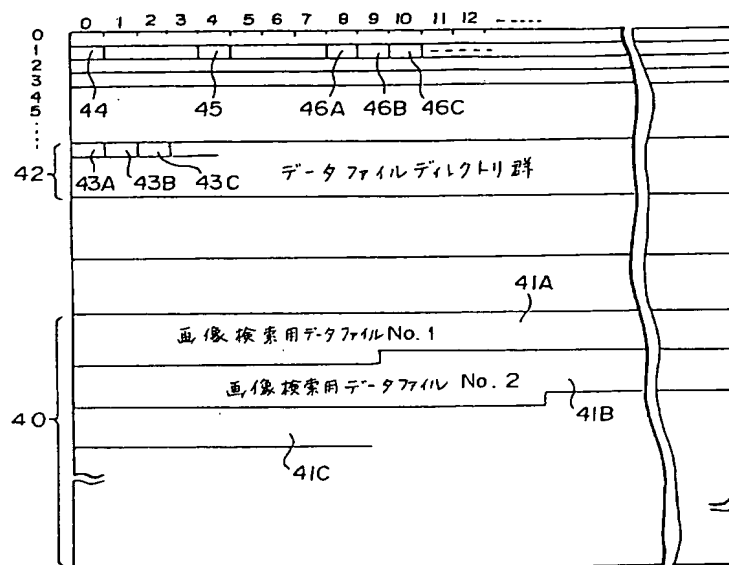 0 1 2 3 4 5 6 7 8 9 10 11 12 -----
0
1
2
3
4
5
44 45 46A 46B 46C
42
43A 43B 43C データファイルディレクトリ群
41A
画像検索用データファイル No. 1
画像検索用データファイル No. 2
40
41B
41C